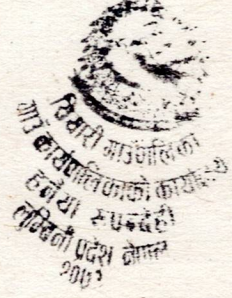 सियारी गाउँपालिका
गाउँ कार्यपालिकाको कार्यालय
रुपन्देही
लुम्बिनी प्रदेश नेपाल
२०७३